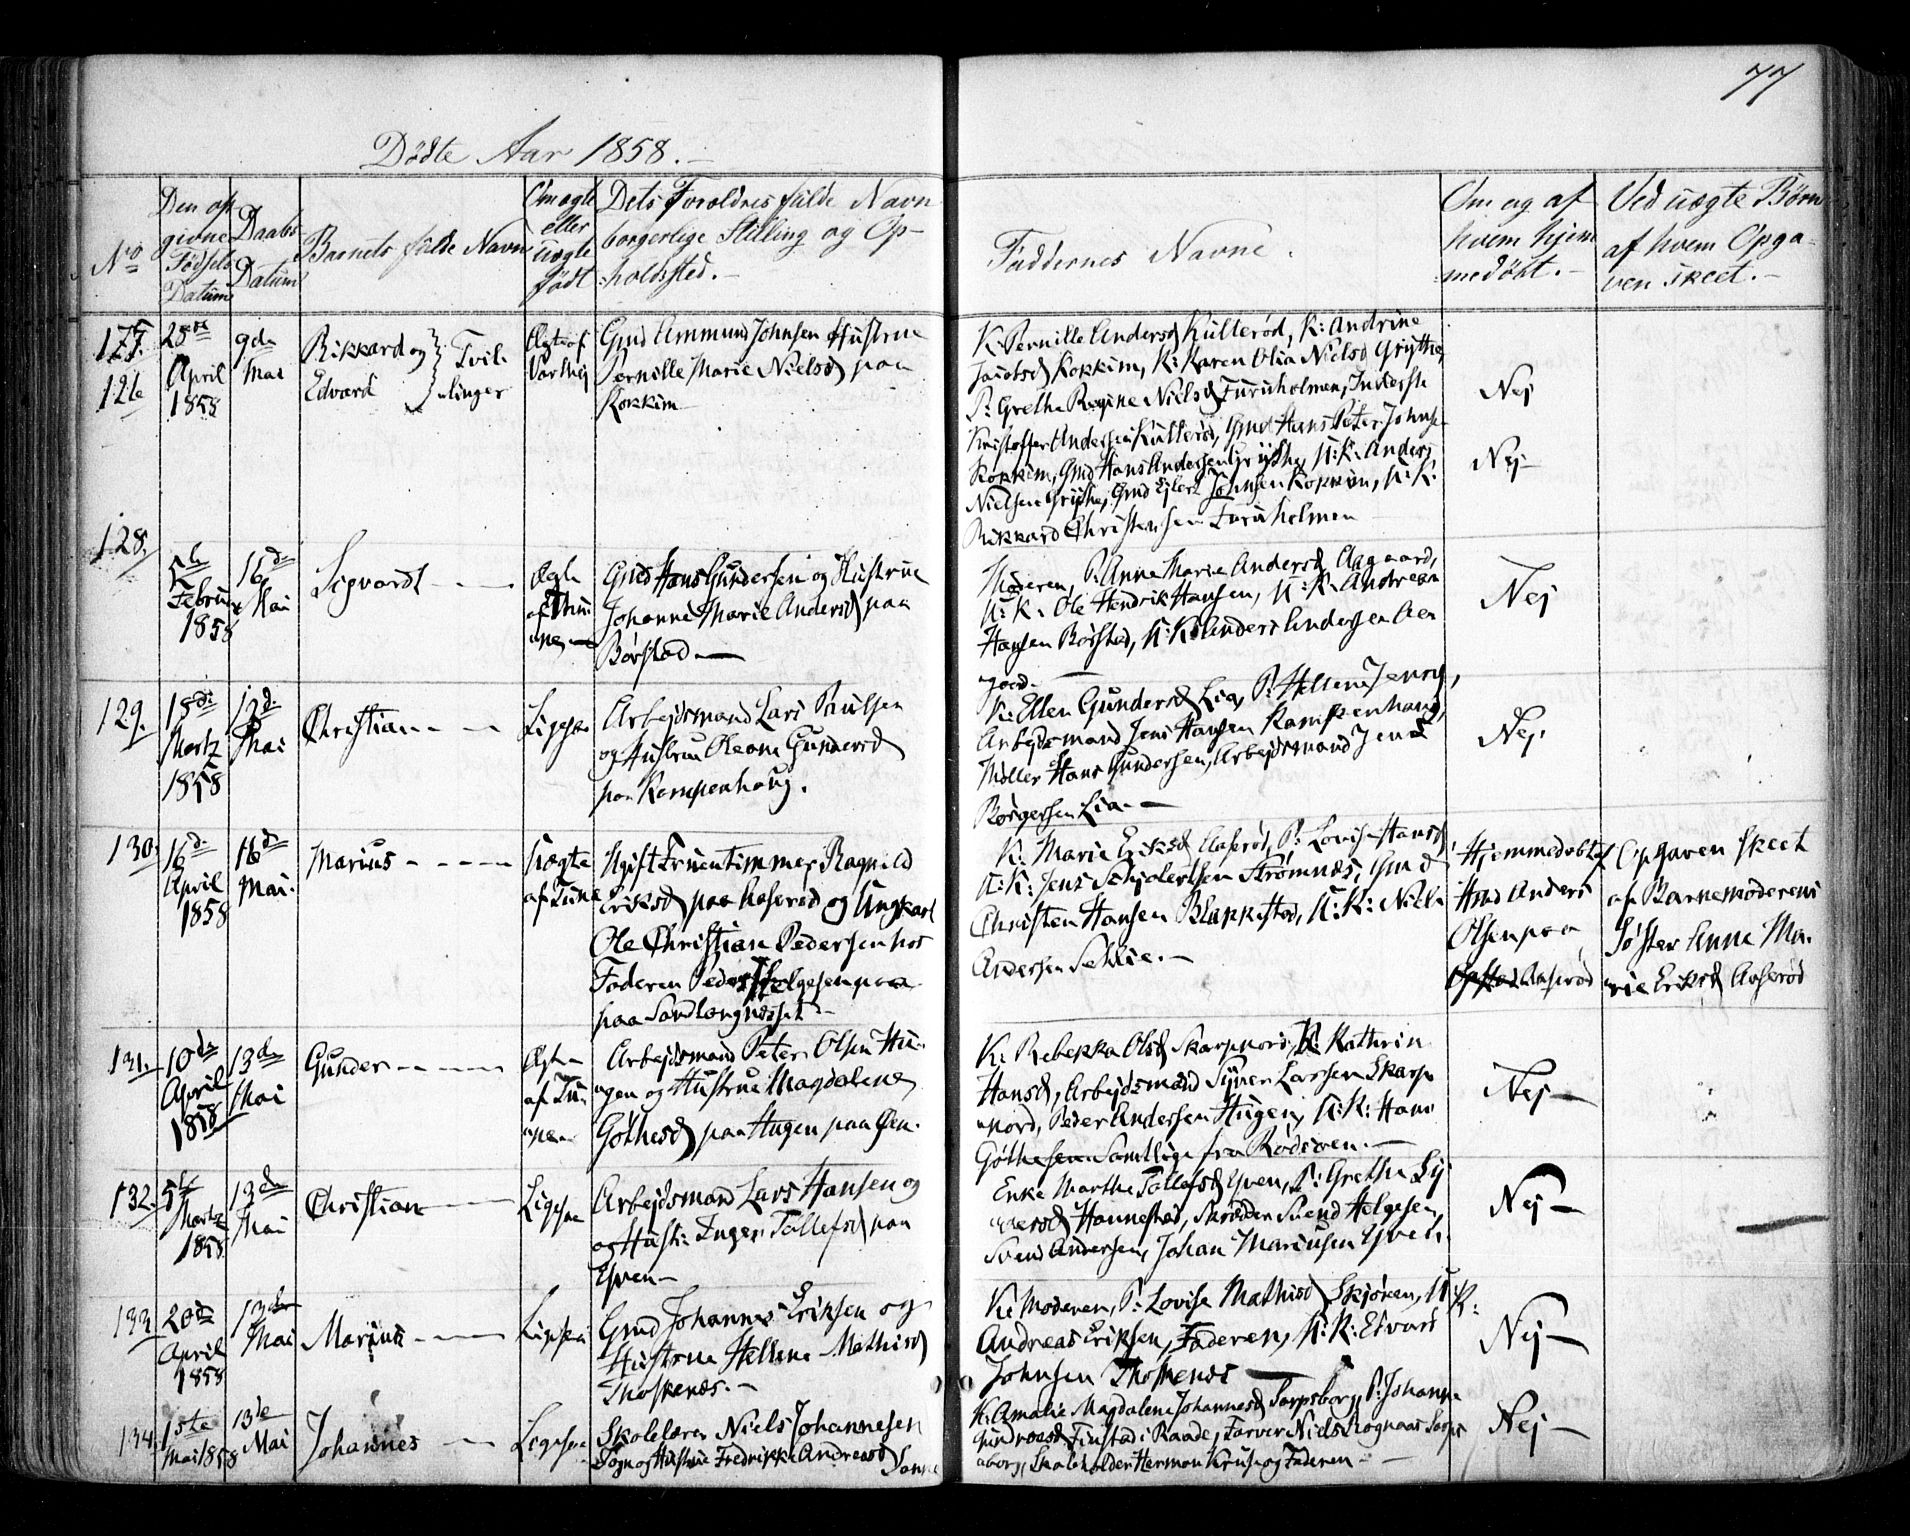 77
Døbte Aar 1858.
No
Den op
givne
Fødsels
Datum
Daabs
Datum
Barnets fulde Navn
Om ægte
eller
uægte
født
Dets Forældres fulde Navn
borgerlige Stilling og Op-
holdssted.
Faddernes Navne.
Om og af
hvem hjem
medøbt.
Ved uægte Børn
af hvem Opga-
ven skeet.
126
April
1858
9de
Mai
Rikkard og
Edvard
Tvil-
linger
Gmd Ammund Johnsen Hustrue
Pernille Marie Nielsd paa
Kokkim
K: Pernille Andersd Kullerød, K: Andrine
Jacobsd Kokkim, K: Karen Olia Nielsd Grythe,
P: Grethe Regine Nielsd Furuholmen, Inderste
Kristoffer Andersen Kullerød, Gmd Hans Peter Johnse
Kokkim, Gmd Hans Andersen Grythe, U:K: Anders
Nielsen Grythe, Gmd Ejlert Johnsen Kokkim, U:K:
Rikkard Christensen Furuholmen
Nej
Nej
128.
5te
Februar
1858
16de
Mai
Sigvardt
Ægte
Gmd Hans Gundersen og Hustrue
Johanne Marie Andersd paa
Børstad
Moderen, P: Anne Marie Andersd Aagaard,
U:K: Ole Hendrik Hansen, U:K: Andreas
Hansen Børstad, U:K: Anders Andersen Aa
gaard
Nej
129.
18de
Martz
1858
13de
Mai
Christian
Ligesaa
Arbejdsmand Lars Paulsen
og Hustrue Oleane Gundersd
paa Kampenhaug.
K: Ellen Gundersd Lia, P: Hellene Jensd,
Arbejdsmand Jens Hansen Kampenhaug,
Møller Hans Gundersen, Arbejdsmand Jens
Børgersen Lia.
Nej.
130.
16de
April
1858
16de
Mai.
Marius
Uægte
af Tune
Ugift Fruentimmer Ragnild
Eriksd paa Aaserød og Ungkarl
Ole Christian Pedersen hos
Faderen Peder Helgesen paa
paa Sandtangnesset
K: Marie Eriksd Aaserød, P: Lovise Hansd
U:K: Jens Schjolertsen Strømnæs, Gmd
Christen Hansen Blakkestad, U:K: Niels
Andersen Sekkie.
Hjemmedøbt af
Hmd Anders
Olsen paa
Aaserød
Opgaven skeet
af Barnemoderens
Søster Anne Ma-
rie Eriksd Aaserød
131.
10de
April
1858
13de
Mai
Gunder
Ægte
af Tu-
ne
Arbejdsmand Peter Olsen Hu-
gen og Hustrue Magdalene
Gøthesd paa Hugen paa Øen.
K: Rebekka Olsd Skarpnord, P: Kathrin
Hansd, Arbejdsmand Syver Larsen Skarp
nord, Peder Andersen Hugen, U:K: Hans
Gøthesen Samtlige fra Rødsøen.
Nej
132.
5te
Martz
1858
13de
Mai
Christian
Ligesaa
Arbejdsmand Lars Hansen og
og Hust: Inger Tollefsd paa
Yven
Enke Marthe Tollefsd Yven, P: Grethe Sy
versd Hannestad, Skrædder Svend Helgesen,
Svend Andersen, Johan Mariusen Yven.
Nej
133
20de
April
1858
13de
Mai
Marius
Ligesaa
Gmd Johannes Eriksen og
Hustrue Hellene Mathisd
Thoskenæs.
K: Moderen, P: Lovise Mathisd Skjøren, U:K:
Andreas Eriksen, Faderen, U:K: Edvart
Johnsen Thoskenæs
Nej
134
1ste
Mai 1858
13de
Mai
Johannes
Ligesaa
Skolelærer Niels Johannesen
og Hustrue Fredrikke Andreasd
K: Amalie Magdalene Johannesd Sarpsborg, P: Johanne
Andreasd Finstad i Raade, Farver Niels Rognaas Sarps
borg, Skoleholder Herman Kruse og Faderen
Nej